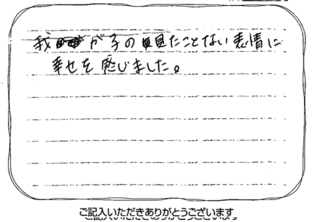 我が子の見たことない表情に
幸せを感じました。
ご記入いただきありがとうございます